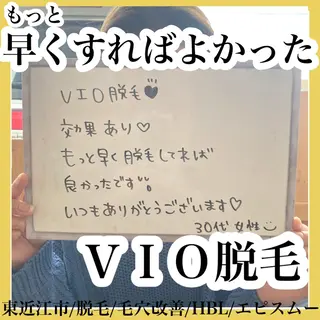 もっと
早くすればよかった
VIO脱毛♥
効果あり♡
もっと早く脱毛してれば
良かったです
いつもありがとうございます♡
30代 女性
VIO脱毛
東近江市/脱毛/毛穴改善/HBL/エピスムー